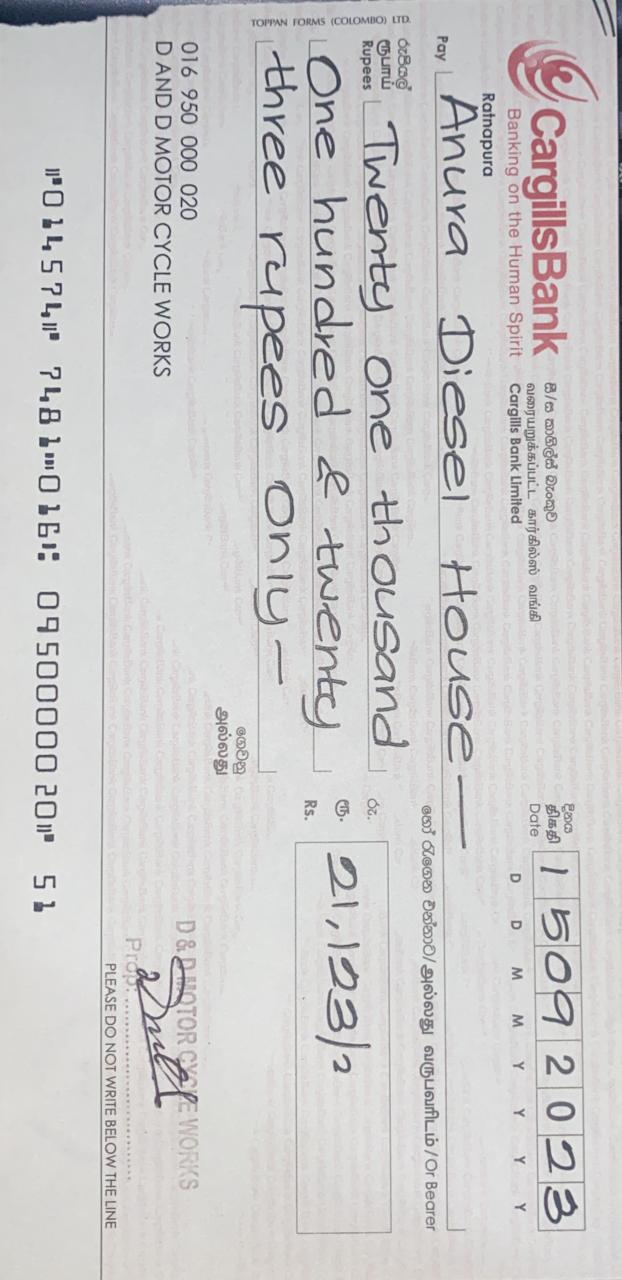 CargillsBank
Banking on the Human Spirit
සී/ස කාගිල්ස් බැංකුව
வரையறுக்கப்பட்ட கார்கில்ஸ் வங்கி
Cargills Bank Limited
Ratnapura
දිනය
திகதி
Date
15092023
D D M M Y Y Y Y
Pay Anura Diesel House —
හෝ රැගෙන එන්නාට/அல்லது வருபவரிடம்/Or Bearer
රුපියල්
ரூபாய்
Rupees
Twenty one thousand
One hundred & twenty
three rupees Only —
රු.
ரூ.
Rs.
21,123/
ගෙවනු
அல்லது
TOPPAN FORMS (COLOMBO) LTD.
016 950 000 020
D AND D MOTOR CYCLE WORKS
D & D MOTOR CYCLE WORKS
Prop:
PLEASE DO NOT WRITE BELOW THE LINE
⑈014574⑈ 7481⑉016⑆ 0950000020⑈ 51